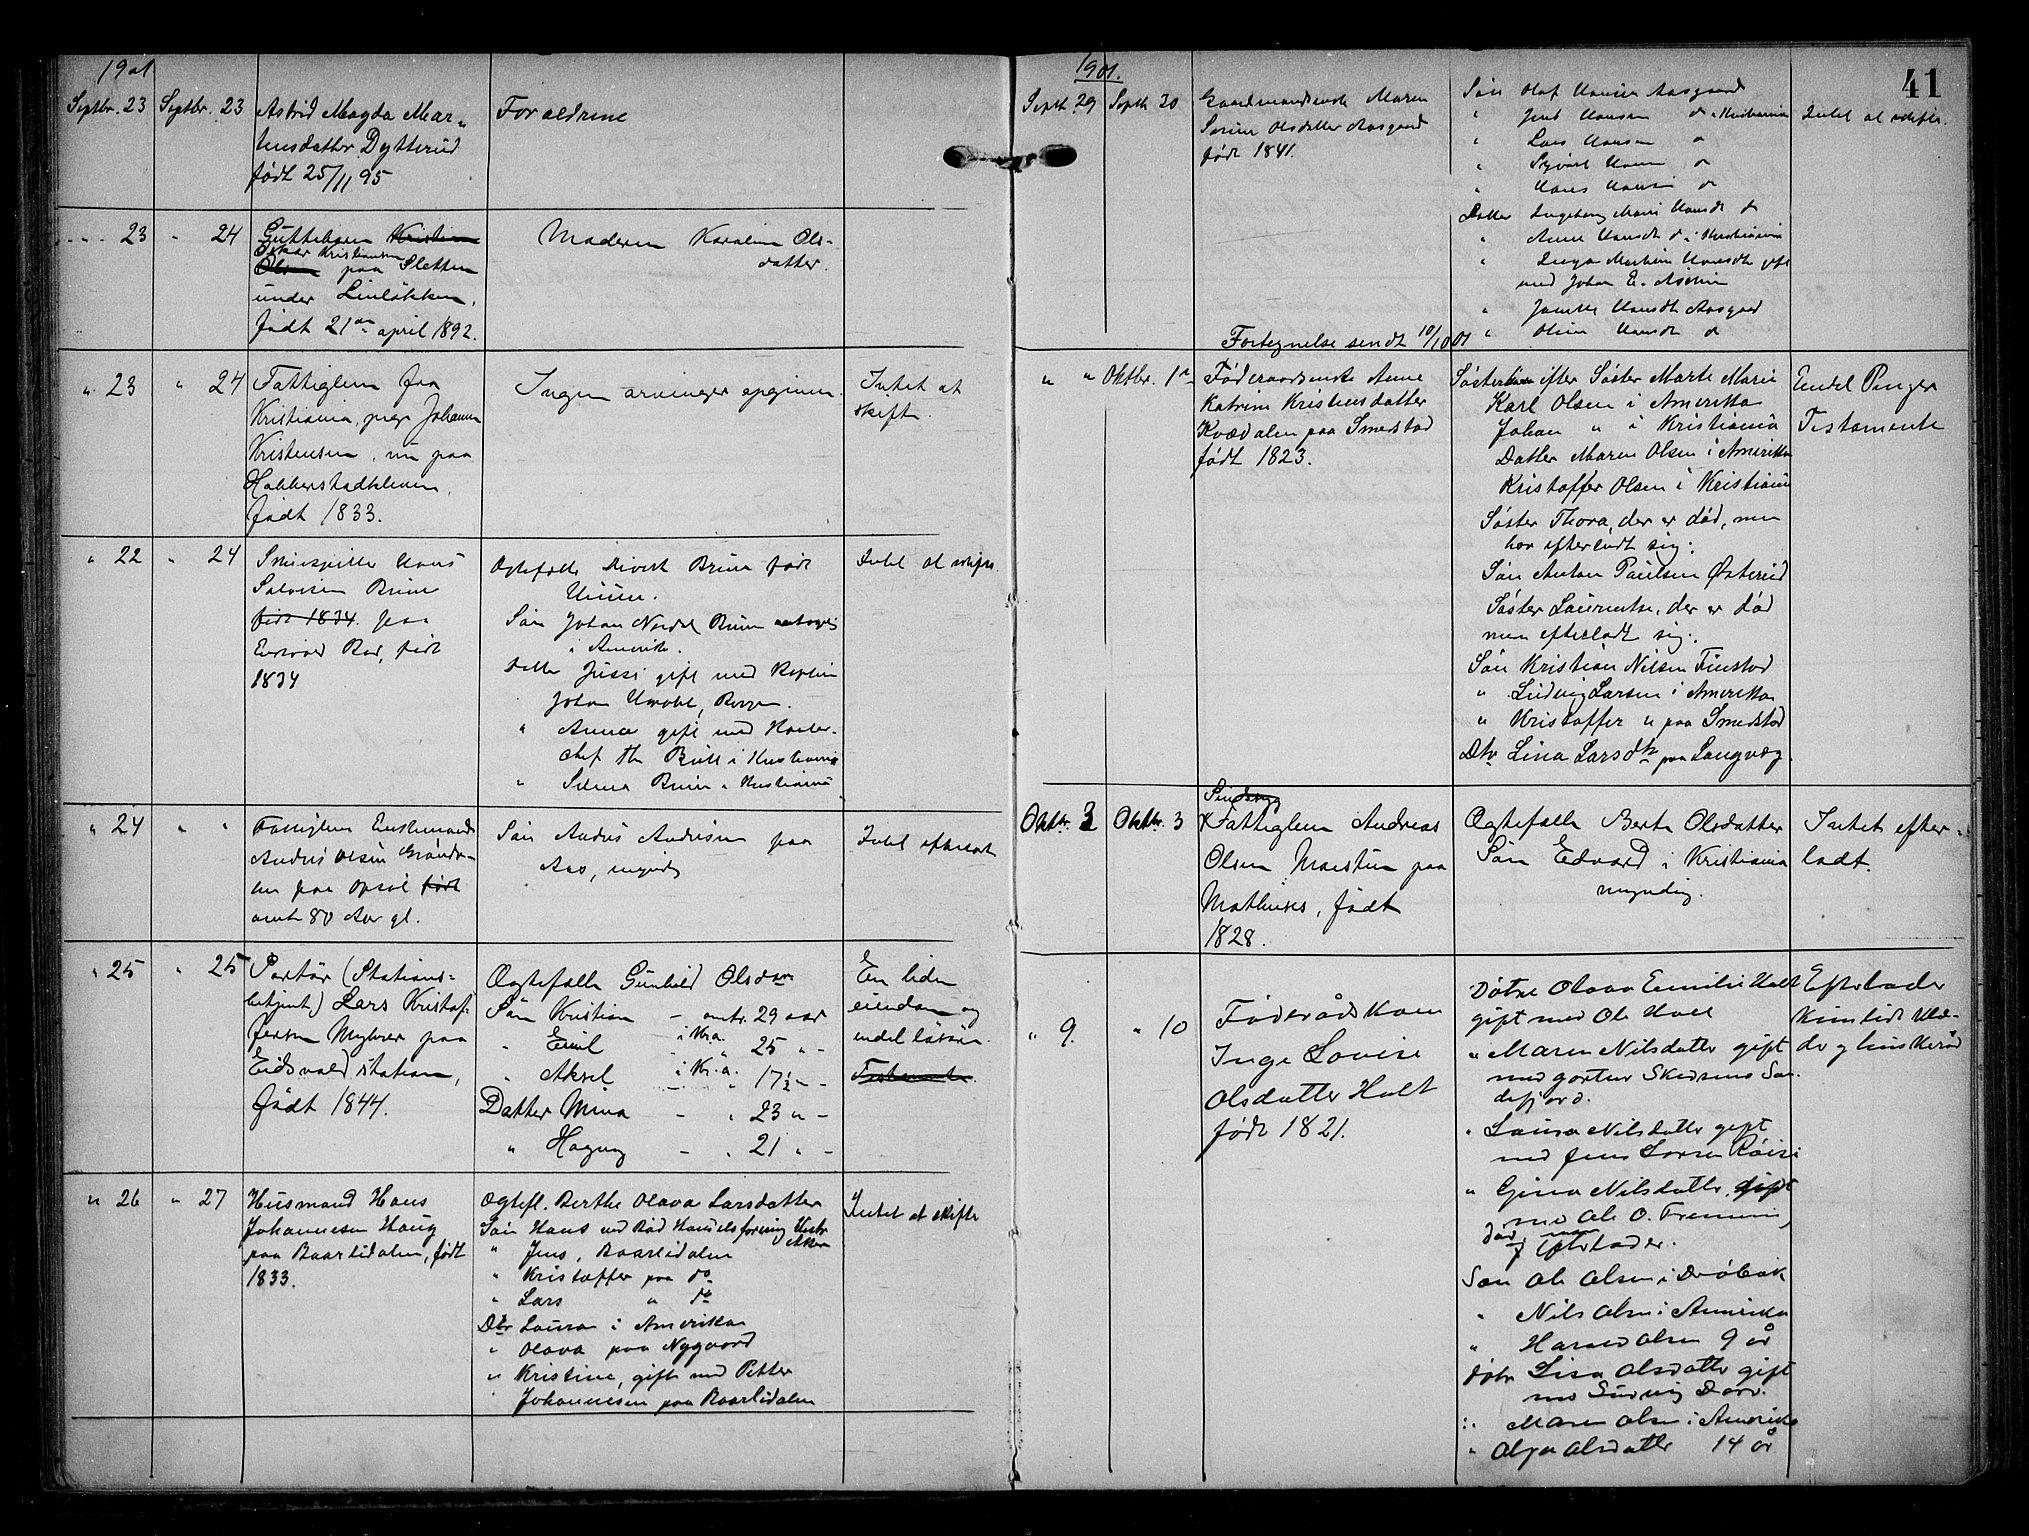 1901
Septbr. 23 Septbr. 23 Astrid Magda Mar-
tinsdatter Dytterud
født 25/11 95
Foraldrene
" 23 " 24 Guttebarn Kristian
Oskar Kristiansen
Olsen paa Sletten
under Linløkken,
født 21de april 1892.
Moderen Karoline Ols-
datter.
" 23 " 24 Fattiglem fra
Kristiania, pige Johanne
Kristensen, nu paa
født 1833.
Ingen arvinger opgiven.
Intet at
skifte.
" 22 " 24 Skuespiller Hans
Bruun
født 1834. paa
Eidsvold Bad, født
1834
Ægtefælle Sivert Bruun født
Søn Johan Nordal Bruun
i Amerika.
Datter Jussi gift med Kaptein
Johan Bergen.
" Anna gift med
chef Th i Kristiania
" Selma Bruun i Kristiania
Intet at skifte
" 24 " " Fattiglem Enkemand
Anders Olsen
paa Opsal født
omtr 80 Aar gl.
Søn Anders Andersen paa
Aas, myndig
Intet efterladt
" 25 " 25 Portør (Stations-
betjent) Lars Kristof-
fersen Myhrer paa
Eidsvold station,
født 1844.
Ægtefælle Gunhild Olsdatr
Søn Kristian - omtr. 29 aar
" Emil - i Kra. " 25 " -
" Aksel - i Kr.a. " 17½ " -
Datter Mina - " 23 " -
" Hagny - " 21 " -
En liden
eiendom og
endel løsøre.
Testamente.
" 26 " 27 Husmand Hans
Johannesen Haug
paa Baarlidalen, født
1833.
Ægtef. Berthe Olava Larsdatter
Søn Hans ved Bød Handelsforening Vestr
Aker
" Jens, Baarlidalen
" Kristoffer paa do
" Lars " do
Dtr Laura i Amerika
" Olava paa Nygaard
" Kristine, gift med Petter
Johannesen paa Baarlidalen
Intet at skifte
1901.
41
Septb. 29 Septb. 30 Gaardmandsenke Maren
Serine Olsdatter Aasgaard
født 1841.
Fortegnelse sendt 10/10 01
Søn Olaf Hansen Aasgaard
" Hansen do i Kristiania
" Lars Hansen do
" Sigvart Hansen do
" Hans Hansen do
Datter Ingeborg Marie Hansdt do
" Anne Hansdt do i Kristiania
" Inga Mathea Hansdt gift
med Johan E.
" Hansdt Aasgaard
" Oline Hansdt do
Intet at skifte.
" " Oktbr. 1ste Føderaadsenke Anne
Katrine Kristensdatter
Kvædalen paa Smedstad
født 1823.
Søsterbarn efter Søster Marte Marie
Karl Olsen i Amerika
Johan " i Kristiania
Datter Maren Olsen i Amerika
Kristoffer Olsen i Kristiania
Søster Thora, der er død, men
har efterladt sig:
Søn Anton Paulsen Østerud
Søster Laurentse, der er død
men efterladt sig:
Søn Kristian Nilsen Finstad
" Ludvig Larsen i Amerika
" Kristoffer " paa Smedstad
Dtr Lina Larsdtr paa Langvæg
Endel Penger
Testamente
Oktbr. 3 Oktbr. 3 Sindssyg
Fattiglem Andreas
Olsen Maistuen paa
Mathuses, født
1828.
Ægtefælle Berte Olsdatter
Søn Edvard i Kristiania
myndig.
Intet efter-
ladt.
" 9. " 10 Føderådskone
Inge Lovise
Olsdatter Holt
født 1821.
Døtre Olava Emilie Holt
gift med Ole Holt
" Maren Nilsdatter gift
med gartner Skedsmo San-
defjord.
" Laura Nilsdatter gift
med Jens Larsen
" Gina Nilsdatter, gift
med Ole O.
død, men
efterlader.
Søn Ole Olsen i Drøbak
" Nils Olsen i Amerika
" Harald Olsen 9 år
døtr Lisa Olsdatter gift
med Ludvig
" Maren Olsen i Amerika
" Olga Olsdatter 14 år
Efterlader
kun lidt klæ-
der og huskeråd